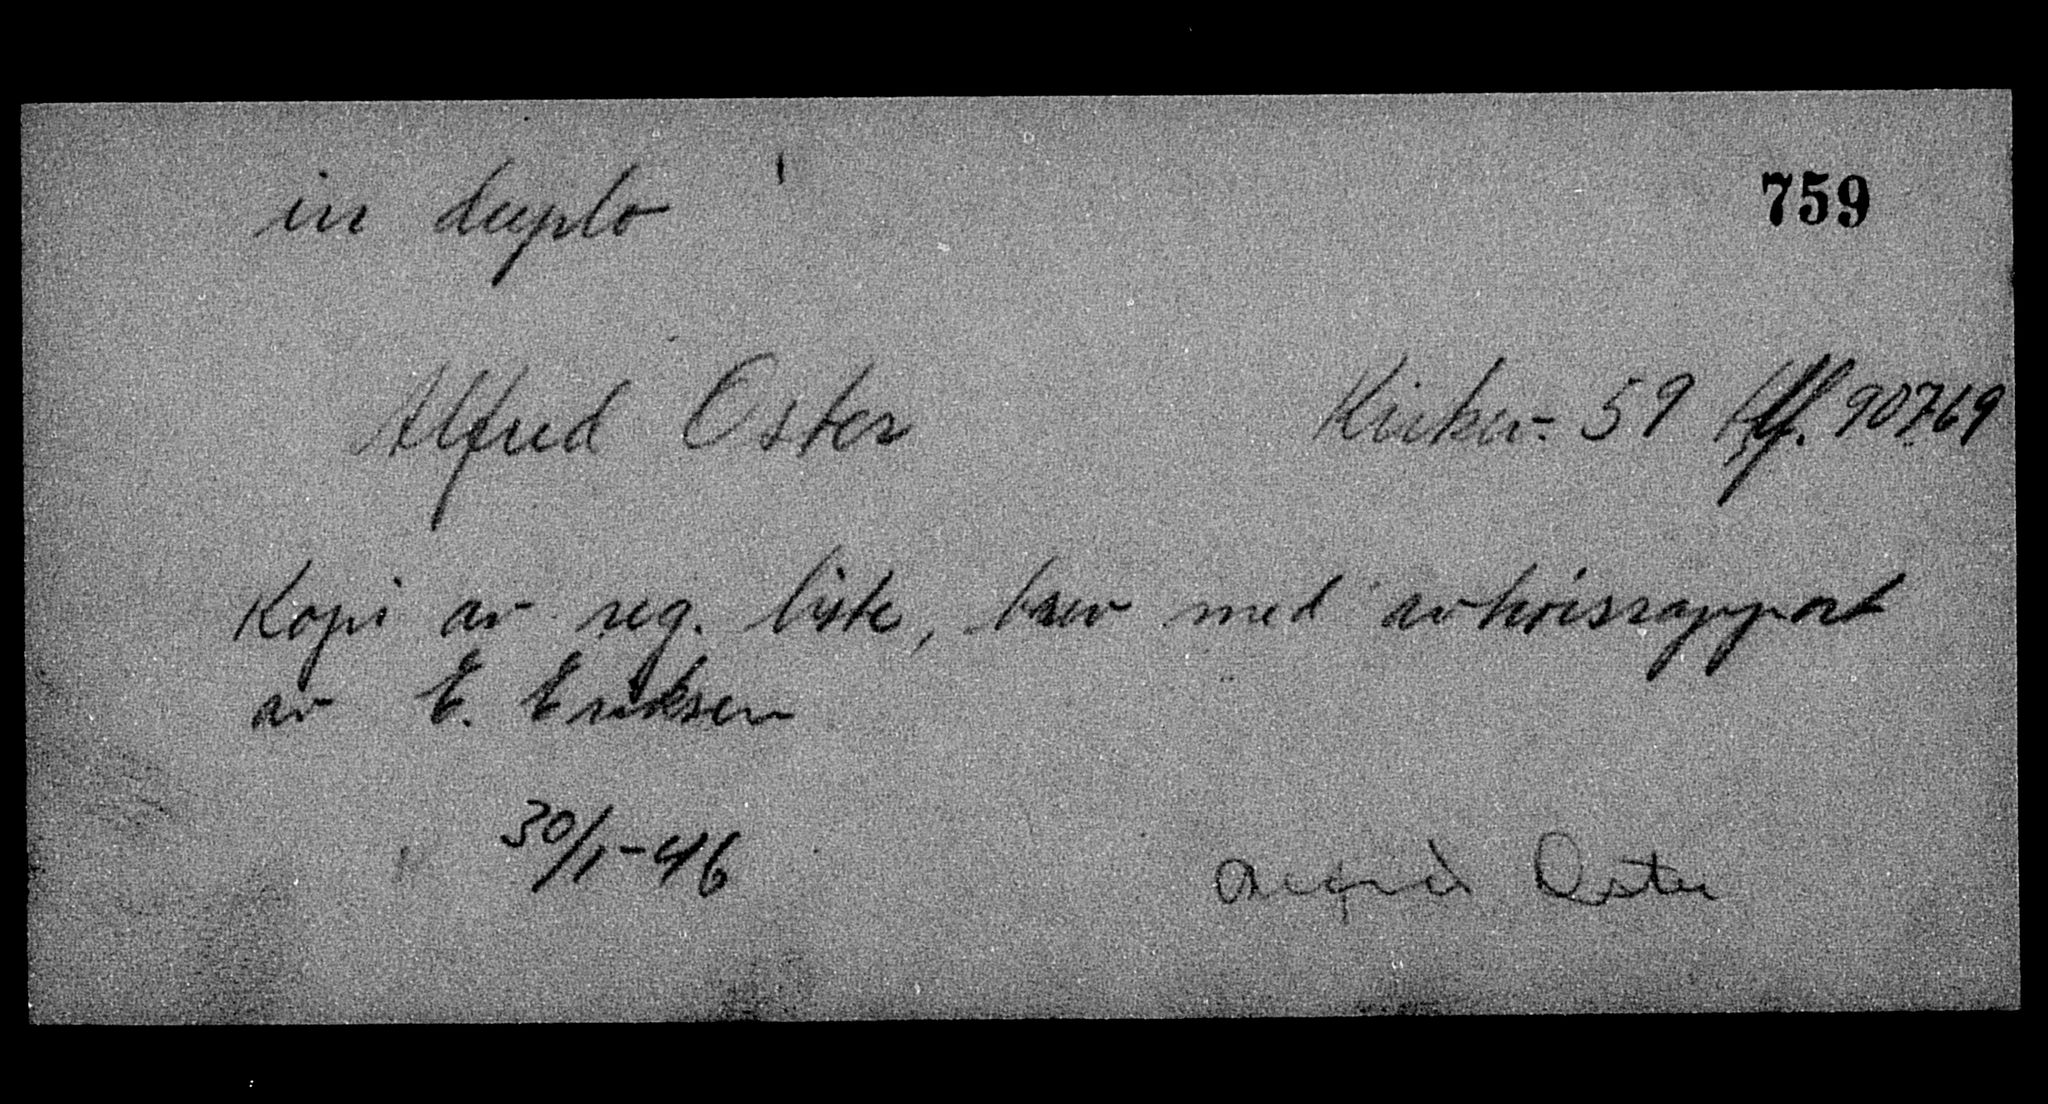 in duplo
759
Alfred Oster Kirkev. 59 tlf. 90769
Kopi av reg. liste, brev med avhørsrapport
av E. Eriksen
30/1-46
Alfred Oster